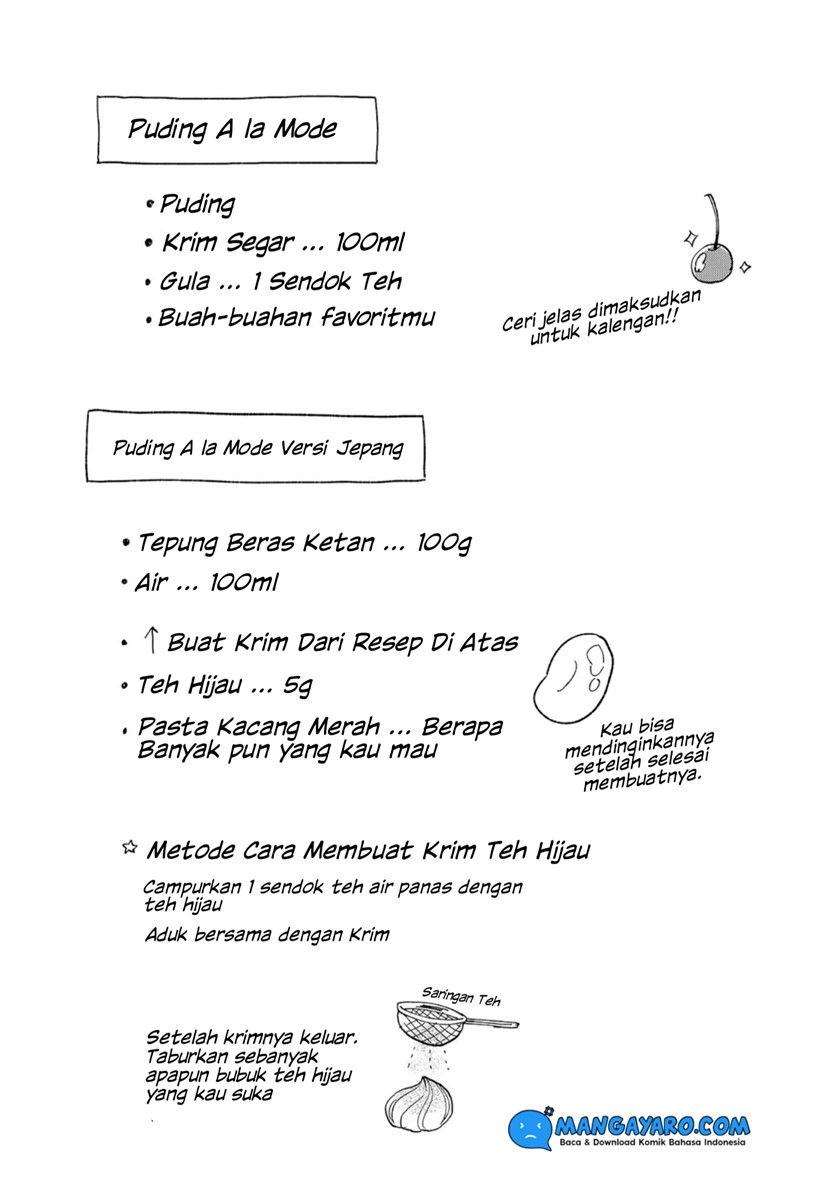 Puding A la Mode
• Puding
• Krim Segar ... 100ml
• Gula ... 1 Sendok Teh
• Buah-buahan favoritmu
Ceri jelas dimaksudkan
untuk kalengan!!
Puding A la Mode Versi Jepang
• Tepung Beras Ketan ... 100g
• Air ... 100ml
• ↑ Buat Krim Dari Resep Di Atas
• Teh Hijau ... 5g
• Pasta Kacang Merah ... Berapa
Banyak pun yang kau mau
Kau bisa
mendinginkannya
setelah selesai
membuatnya.
☆ Metode Cara Membuat Krim Teh Hijau
Campurkan 1 sendok teh air panas dengan
teh hijau
Aduk bersama dengan Krim
Saringan Teh
Setelah krimnya keluar.
Taburkan sebanyak
apapun bubuk teh hijau
yang kau suka
MANGAYARO.COM
Baca & Download Komik Bahasa Indonesia